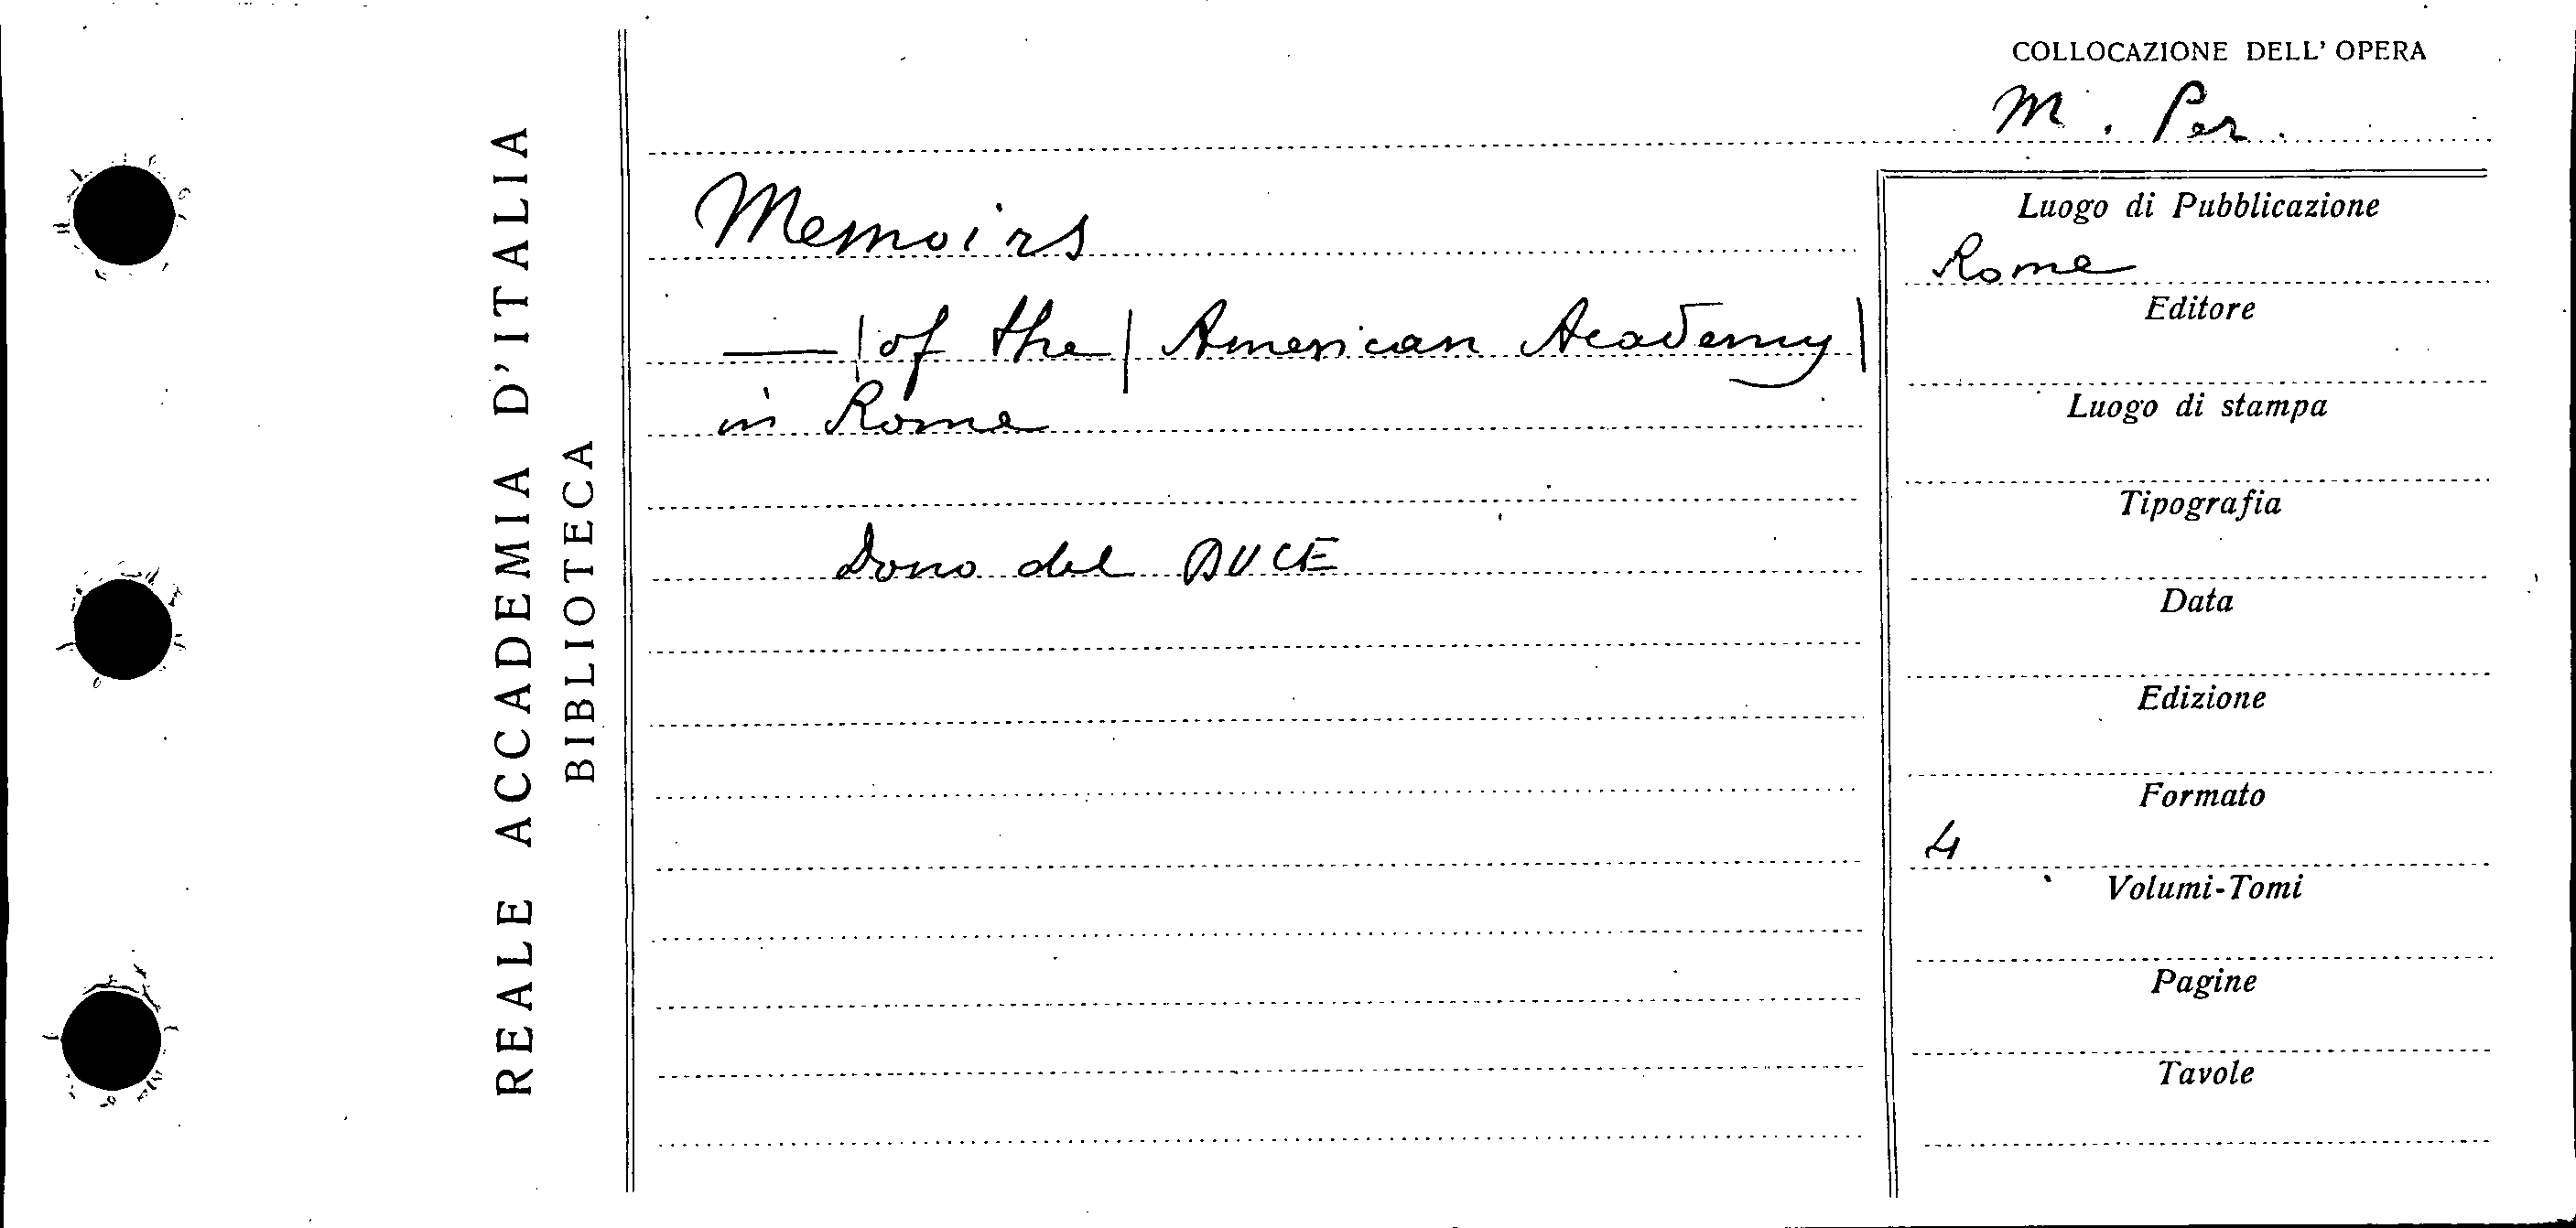 REALE ACCADEMIA D'ITALIA
BIBLIOTECA
COLLOCAZIONE DELL' OPERA
M. Per.
Memoirs
—— | of the | American Academy |
in Rome
Dono del DUCE
Luogo di Pubblicazione
Rome
Editore
Luogo di stampa
Tipografia
Data
Edizione
Formato
4
Volumi-Tomi
Pagine
Tavole